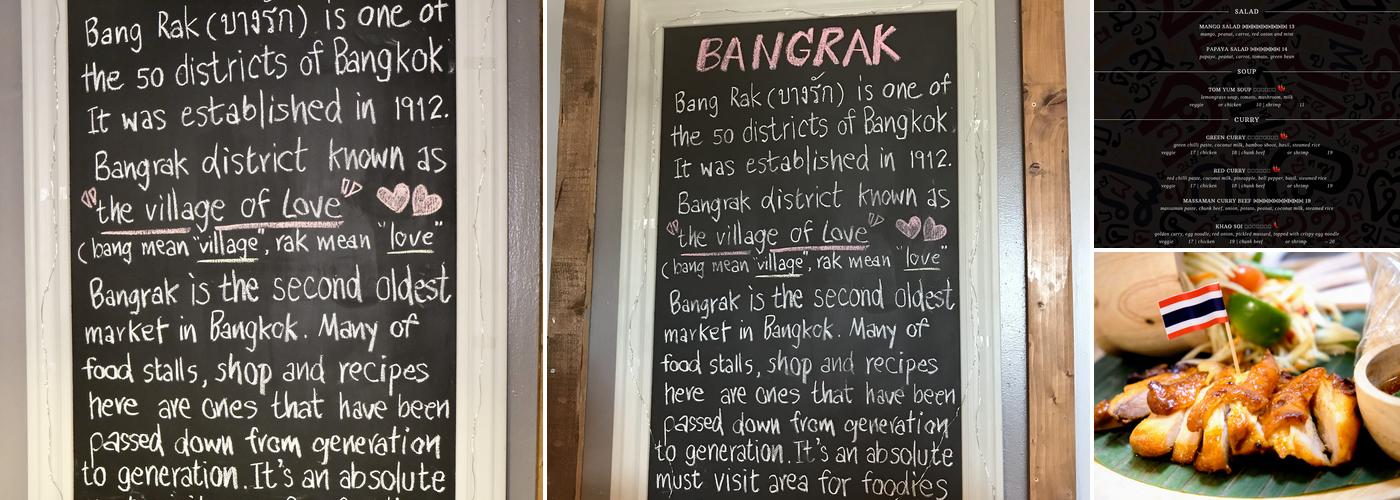 Bang Rak (บางรัก) is one of
the 50 districts of Bangkok.
It was established in 1912.
Bangrak district known as
"the village of Love"
(bang mean "village", rak mean "love"
Bangrak is the second oldest
market in Bangkok. Many of
food stalls, shop and recipes
here are ones that have been
passed down from generation
to generation. It's an absolute
BANGRAK
Bang Rak (บางรัก) is one of
the 50 districts of Bangkok.
It was established in 1912.
Bangrak district known as
"the village of Love"
(bang mean "village", rak mean "love"
Bangrak is the second oldest
market in Bangkok. Many of
food stalls, shop and recipes
here are ones that have been
passed down from generation
to generation. It's an absolute
must visit area for foodies
SALAD
MANGO SALAD 13
mango, peanut, carrot, red onion and mint
PAPAYA SALAD 14
papaya, peanut, carrot, tomato, green bean
SOUP
TOM YUM SOUP
lemongrass soup, tomato, mushroom, milk
veggie or chicken 10 | shrimp 11
CURRY
GREEN CURRY
green chilli paste, coconut milk, bamboo shoot, basil, steamed rice
veggie 17 | chicken 18 | chunk beef or shrimp 19
RED CURRY
red chilli paste, coconut milk, pineapple, bell pepper, basil, steamed rice
veggie 17 | chicken 18 | chunk beef or shrimp 19
MASSAMAN CURRY BEEF 19
massaman paste, chunk beef, onion, potato, peanut, coconut milk, steamed rice
KHAO SOI
golden curry, egg noodle, red onion, pickled mustard, topped with crispy egg noodle
veggie 17 | chicken 19 | chunk beef or shrimp 20